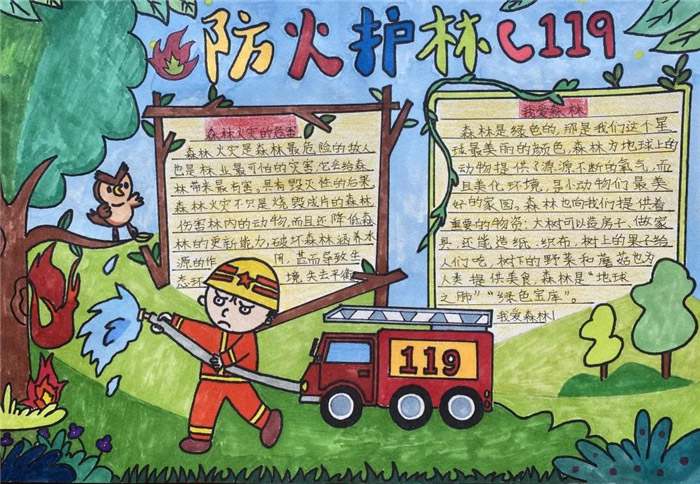 防火护林119
森林火灾的危害
森林火灾是森林最危险的敌人,
也是林业最可怕的灾害,它会给森
林带来最有害,具有毁灭性的后果,
森林火灾不只是烧毁成片的森林,
伤害林内的动物,而且还降低森
林的更新能力,破坏森林涵养水
源的作 用,甚而导致生
态环 境失去平衡
我爱森林
森林是绿色的,那是我们这个星
球最美丽的颜色,森林为地球上的
动物提供了源源不断的氧气,而
且美化环境,是小动物们最美
好的家园,森林也向我们提供着
重要的物资:大树可以造房子、做家
具,还能造纸、织布,树上的果子给
人们吃,树下的野菜和蘑菇也为
人类提供美食,森林是“地球
之肺”“绿色宝库”。
我爱森林!
119